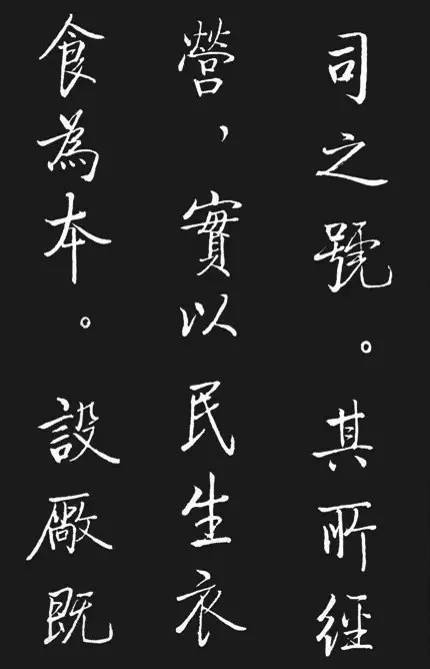 司之號。其所經
營，實以民生衣
食為本。設厰既